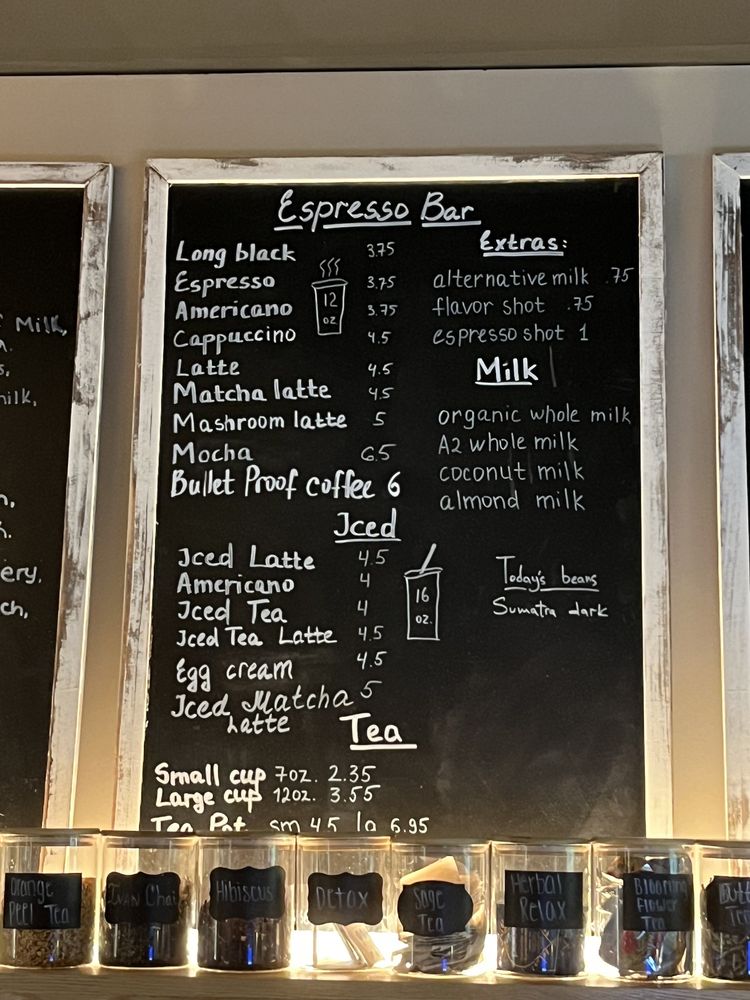 Milk,
milk,
ery.
ch,
Espresso Bar
Long black 3.75
Espresso 3.75
Americano 3.75
Cappuccino 4.5
Latte 4.5
Matcha latte 4.5
Mashroom latte 5
Mocha 6.5
Bullet Proof coffee 6
12
oz
Extras:
alternative milk .75
flavor shot .75
espresso shot 1
Milk
organic whole milk
A2 whole milk
coconut milk
almond milk
Iced
Iced Latte 4.5
Americano 4
Iced Tea 4
Iced Tea Latte 4.5
Egg cream 4.5
Iced Matcha 5
Latte
16
oz.
Today's beans
Sumatra dark
Tea
Small cup 7oz. 2.35
Large cup 12oz. 3.55
Tea Pot sm 4.5 lg 6.95
Orange
Peel Tea
IVAN Chai
Hibiscus
Detox
Sage
Tea
Herbal
Relax
Blooming
Flower
Tea